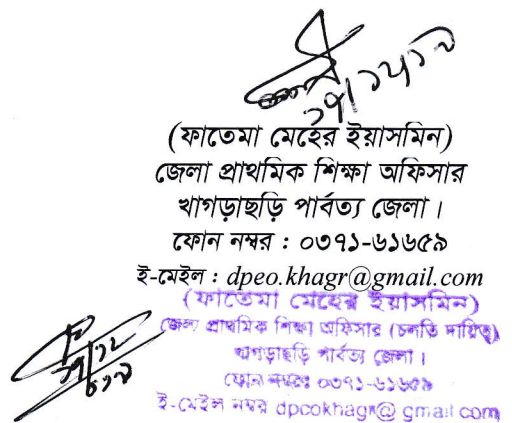 (ফাতেমা মেহের ইয়াসমিন)
জেলা প্রাথমিক শিক্ষা অফিসার
খাগড়াছড়ি পার্বত্য জেলা।
ফোন নম্বর : ০৩৭১-৬১৬৫৯
ই-মেইল : dpeo.khagr@gmail.com
(ফাতেমা মেহের ইয়াসমিন)
জেলা প্রাথমিক শিক্ষা অফিসার (চলতি দায়িত্ব)
খাগড়াছড়ি পার্বত্য জেলা।
ফোন নম্বরঃ ০৩৭১-৬১৬৫৯
ই-মেইল নম্বর dpeokhagr@gmail.com